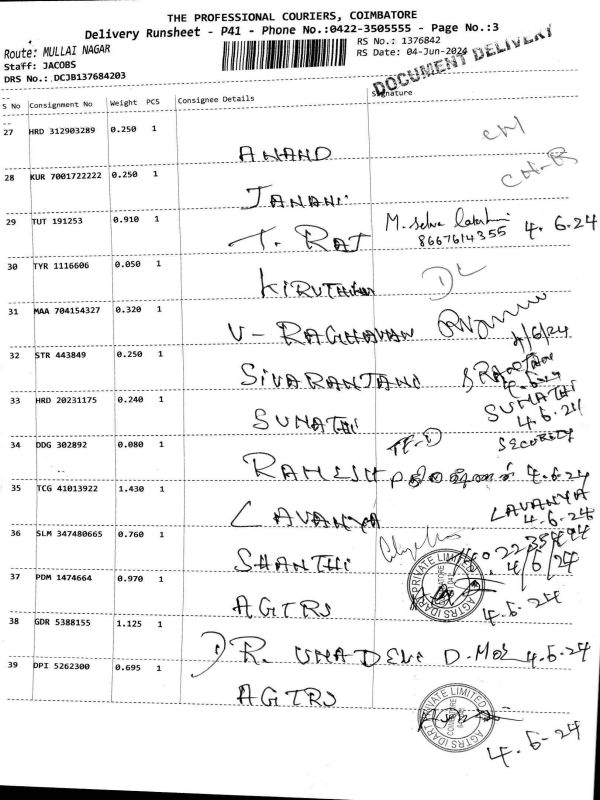 THE PROFESSIONAL COURIERS, COIMBATORE
Delivery Runsheet - P41 - Phone No.:0422-3505555 - Page No.:3
Route: MULLAI NAGAR
RS No.: 1376842
Staff: JACOBS
RS Date: 04-Jun-2024
DRS No.: DCJB137684203
DOCUMENT DELIVERY
S No Consignment No Weight PCS Consignee Details Signature
27 HRD 312903289 0.250 1
ANAND
28 KUR 7001722222 0.250 1
JANANI
29 TUT 191253 0.910 1
T. RAJ M. Selva 8667614355 4.6.24
30 TYR 1116606 0.050 1
KIRUTHIKA DL
31 MAA 704154327 0.320 1
V-RAGHAVAN 4/6/24
32 STR 443849 0.250 1
SIVARANJANI
33 HRD 20231175 0.240 1
SUMATHI SUMATHI 4.6.24
34 DDG 302892 0.080 1
SECURITY
RAMESH 4.6.24
35 TCG 41013922 1.430 1
LAVANYA LAVANYA 4.6.24
36 SLM 347480665 0.760 1
SHANTHI 4/6/24
37 PDM 1474664 0.970 1
AGTRS PRIVATE LIMITED AGTRS IDART COIMBATORE 4.6.24
38 GDR 5388155 1.125 1
DR. UMADEVI 4.6.24
39 DPI 5262300 0.695 1
AGTRS PRIVATE LIMITED AGTRS IDART COIMBATORE
4.6.24